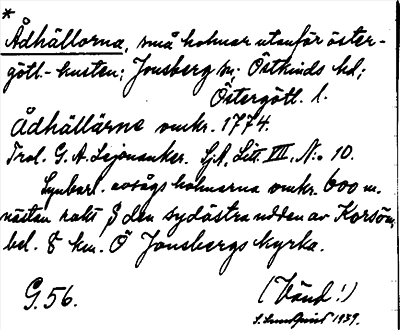 *
Ådhällorna, små holmar utanför öster-
götl.-kusten; Jonsberg sn; Östkinds hd;
Östergötl. l.
Ådhällärne omkr. 1774.
Trol. G. A. Lejonanker. SjA, Litt. VII, No 10.
Synbarl. avsågs holmarna omkr. 600 m.
nästan rakt S den sydöstra udden av Korsön,
bel. 8 km. Ö Jonsbergs kyrka.
G. 56.
(Vänd!)
S. Lundquist 1939.